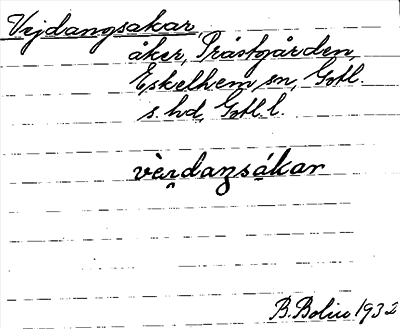 Vejdangsakar
åker, Prästgården,
Eskelhem sn, Gotl.
s. hd, Gotl. l.
B. Bolin 1932